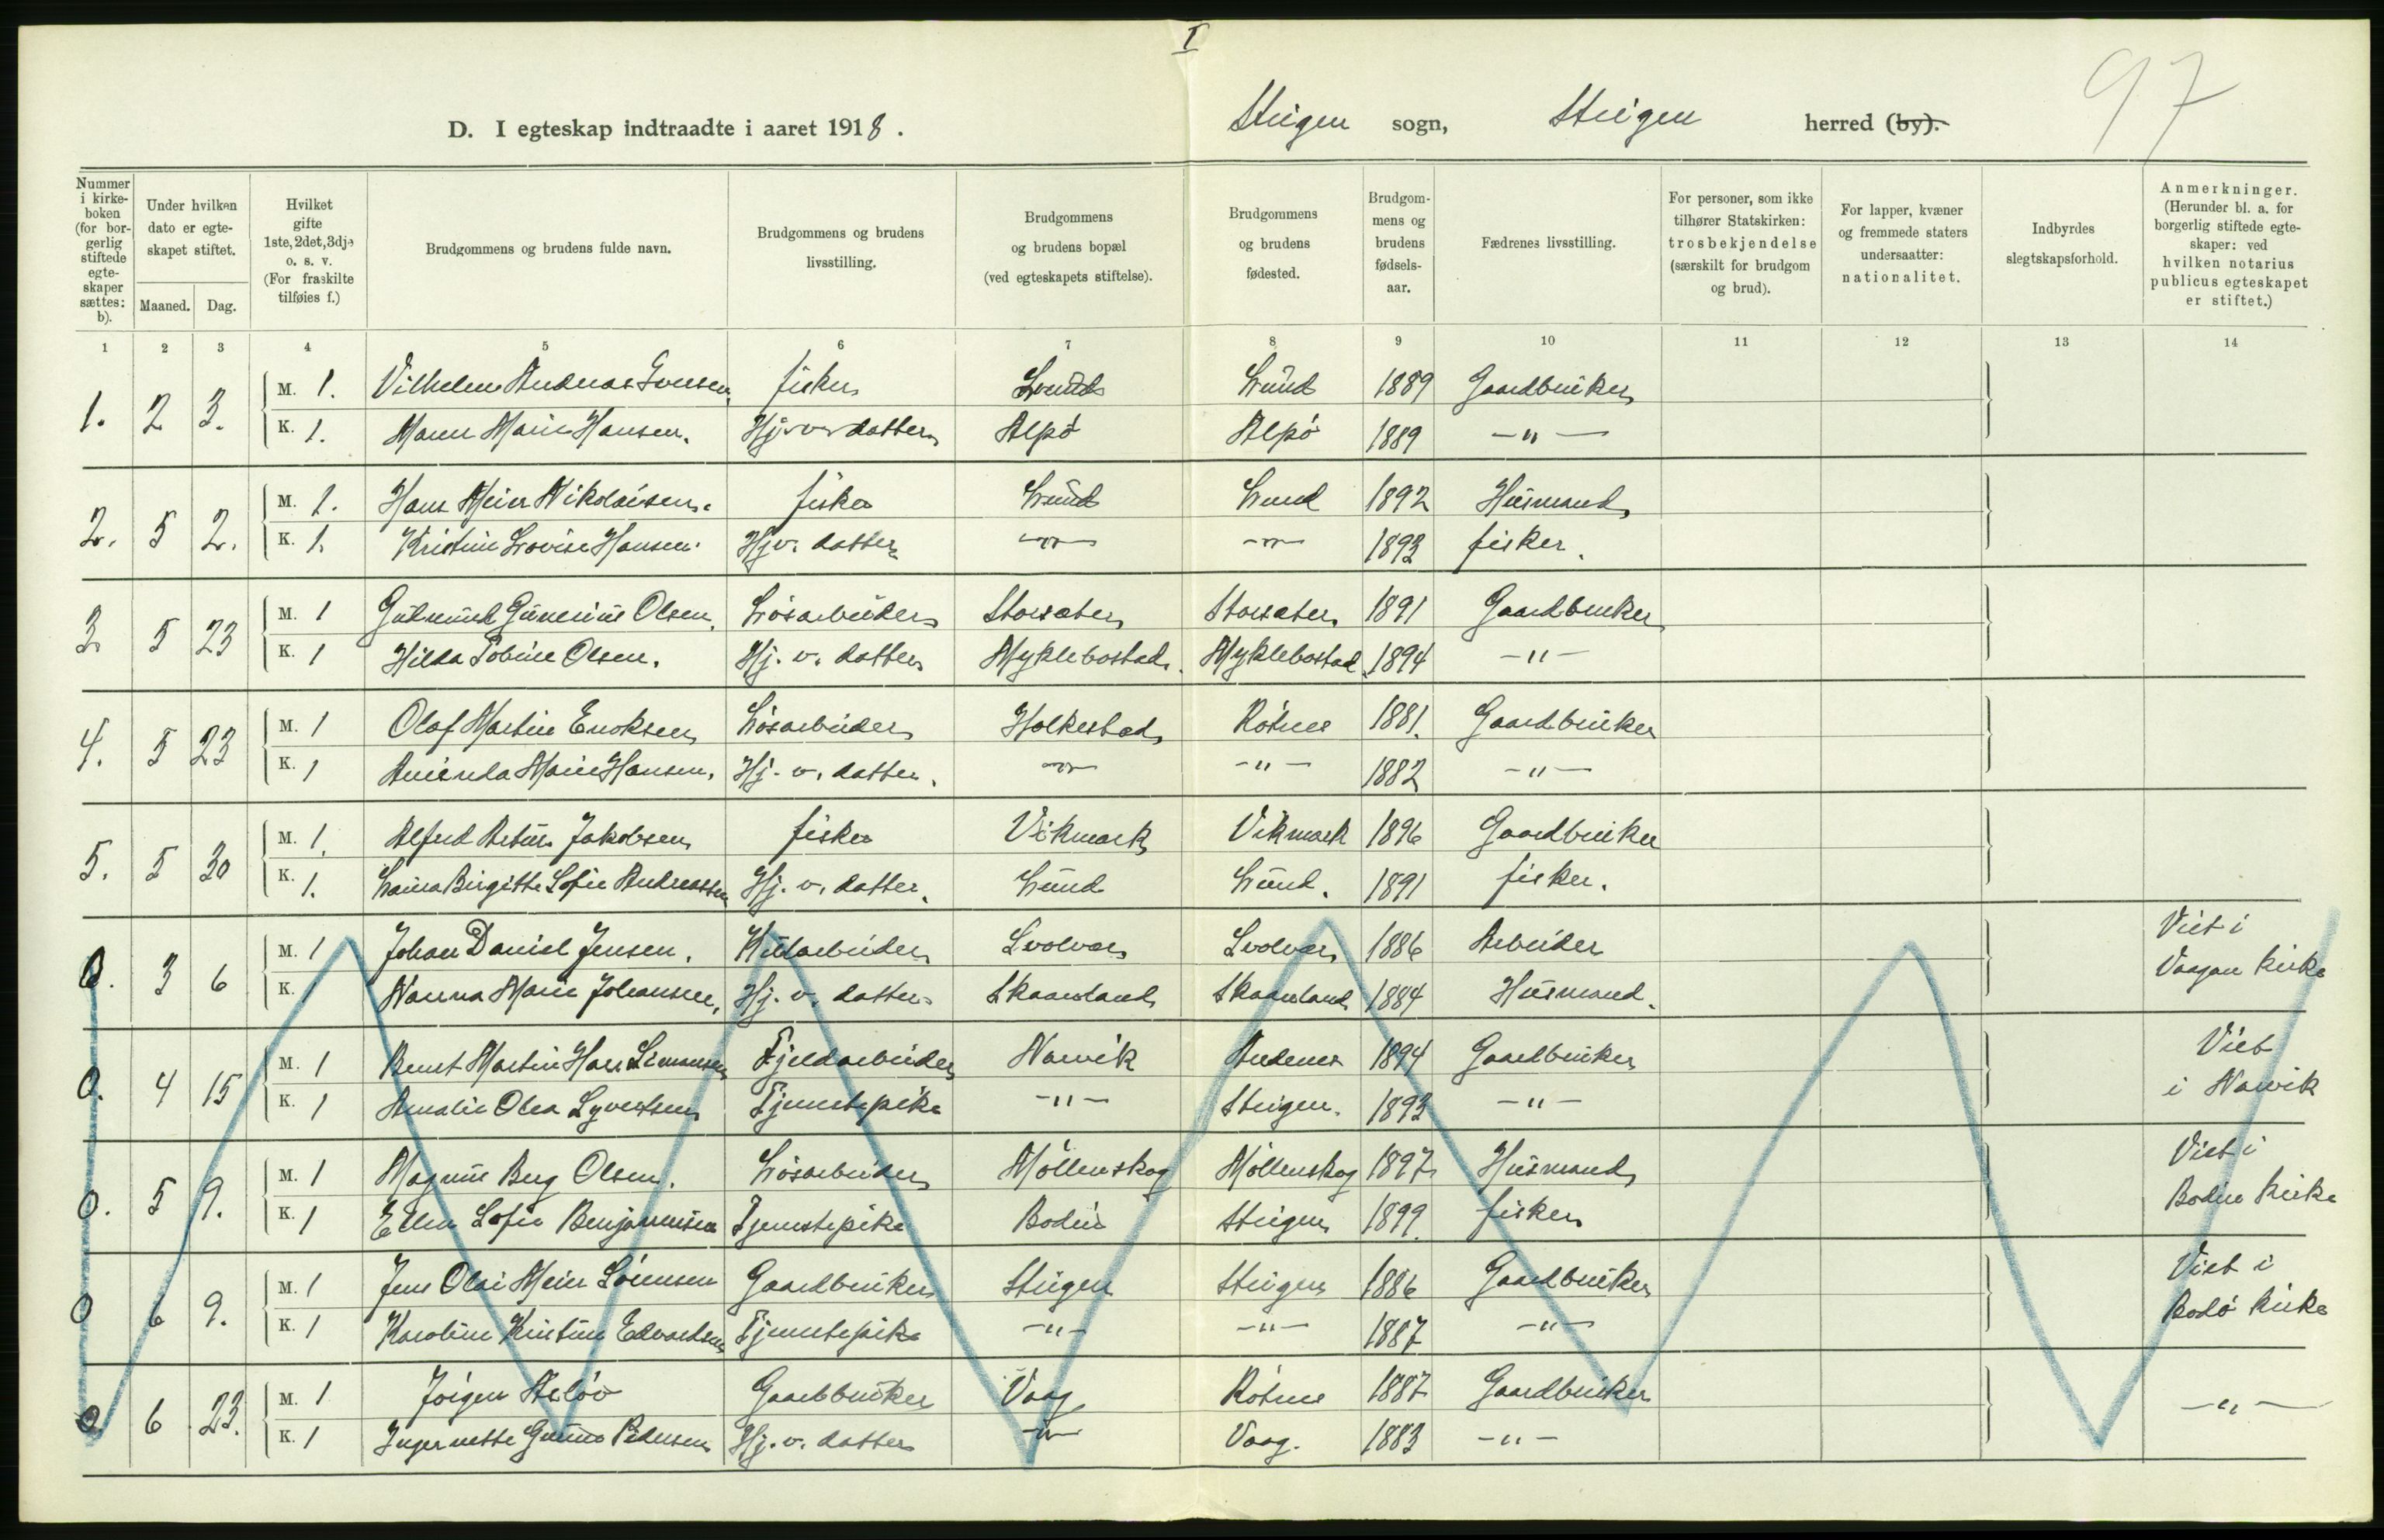 I
97
D. I egteskap indtraadte i aaret 1918. Steigen sogn, Steigen herred (by).
Nummer i kirkeboken (for borgerlig stiftede egteskaper sættes: b).
Under hvilken dato er egteskapet stiftet.
Maaned. Dag.
Hvilket gifte 1ste, 2det, 3dje o. s. v. (For fraskilte tilføies f.)
Brudgommens og brudens fulde navn.
Brudgommens og brudens livsstilling.
Brudgommens og brudens bopæl (ved egteskapets stiftelse).
Brudgommens og brudens fødested.
Brudgommens og brudens fødselsaar.
Fædrenes livsstilling.
For personer, som ikke tilhører Statskirken: trosbekjendelse (særskilt for brudgom og brud).
For lapper, kvæner og fremmede staters undersaatter: nationalitet.
Indbyrdes slegtskapsforhold.
Anmerkninger. (Herunder bl. a. for borgerlig stiftede egteskaper: ved hvilken notarius publicus egteskapet er stiftet.)
1 2 3 4 5 6 7 8 9 10 11 12 13 14
1. 2 3. M. 1. Vilhelm Andreas fisker Lund Lund 1889 Gaardbruker
K. 1. Marie Hansen. Hj. v. datter Alpö Alpö 1889 -"-
2. 5 2. M. 1. Hans Meier Nikolaisen. fisker Lund Lund 1892 Husmand
K. 1. Kristine Lovise Hansen. Hj v. datter -"- -"- 1893 fisker.
3. 5 23 M. 1 Gudmund Gunerius Olsen. Lösarbeider Storsæter Storsæter 1891 Gaardbruker
K. 1 Hilda Tobine Olsen. Hj. v. datter Myklebostad. Myklebostad 1894 -"-
4. 5 23 M. 1 Olaf Martin Enoksen Lösarbeider Holkestad Rötnes 1881. Gaardbruker
K. 1 Marie Hansen. Hj. v. datter. -"- -"- 1882 -"-
5. 5 30 M. 1. Alfred Artur Jakobsen fisker Vikmark Vikmark 1896 Gaardbruker
K. 1. Birgitte Sofie Andreassen Hj. v. datter. Lund Lund. 1891 fisker.
0. 3 6 M. 1 Johan Daniel Jensen. Svolvær Svolvær 1886 Arbeider Viet i
K. Nanna Marie Johansen. Hj. v. datter Skaanland Skaanland 1884 Husmand. Vaagan kirke
0. 4 15 M. 1 Bernt Martin Hans Simonsen Fjeldarbeider Narvik Andenes 1894 Gaardbruker Viet
K. 1 Amalie Olea Syvertsen Tjenestepike -"- Steigen. 1893 -"- i Narvik
0. 5 9. M. 1 Magnus Berg Olsen. Lösarbeider Möllenskog Möllenskog 1897 Husmand Viet i
K. 1 Ellen Sofie Benjaminsen Tjenestepike Bodin Steigen 1899. fisker Bodin kirke
0 6 9. M. 1 Jens Olai Meier Sörensen Gaardbruker Steigen Steigen 1886 Gaardbruker Viet i
K. 1 Karoline Kristine Edvardsen Tjenestepike -"- -"- 1887 -"- Bodö kirke
0. 6 23. M. 1 Jörgen Aslöv Gaardbruker Vaag Rötnes 1887 Gaardbruker -"-
K. 1 Pedersen Hj. v. datter -"- Vaag. 1883 -"-